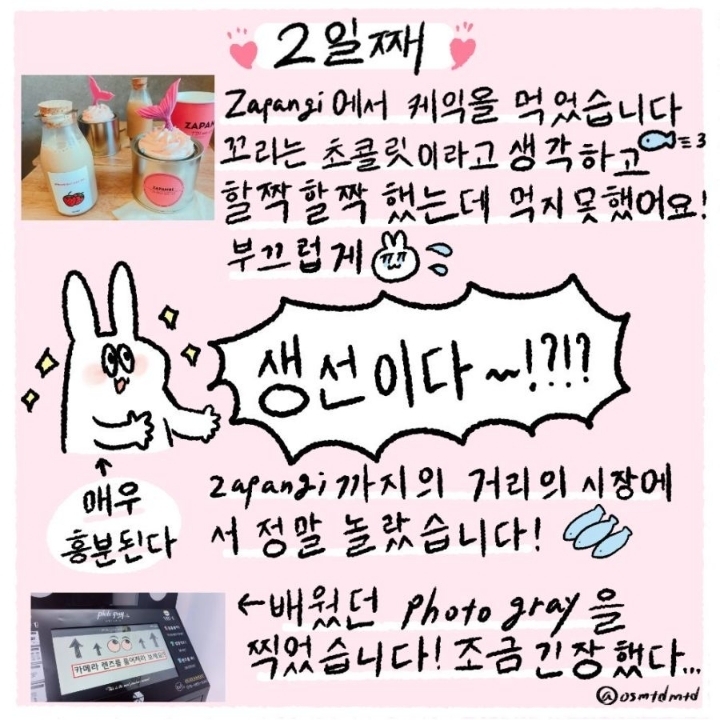 2일째
Zapangi에서 케익을 먹었습니다
꼬라는 초콜릿이라고 생각하고
할짝할짝 했는데 먹지못했어요!
부끄럽게
ZAPANGI
생선이다~!?!?
매우
흥분된다
zapangi까지의 거리의 시장에
서 정말 놀랐습니다!
←배웠던 photo gray을
찍었습니다! 조금긴장했다...
카메라 렌즈를 들여쳐다 보세요!
@osmtdmtd